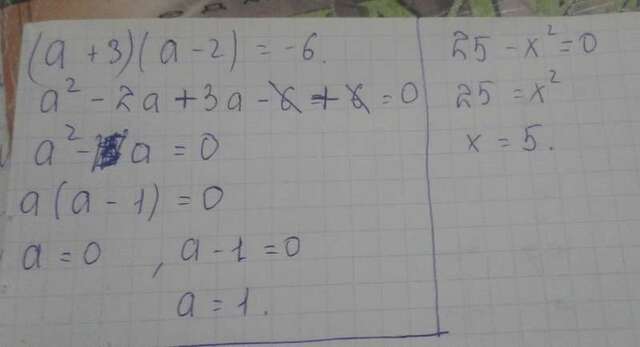 (a + 3)(a - 2) = -6.
a² - 2a + 3a - 6 + 6 = 0
a² - a = 0
a(a - 1) = 0
a = 0 , a - 1 = 0
a = 1.
25 - x² = 0
25 = x²
x = 5.